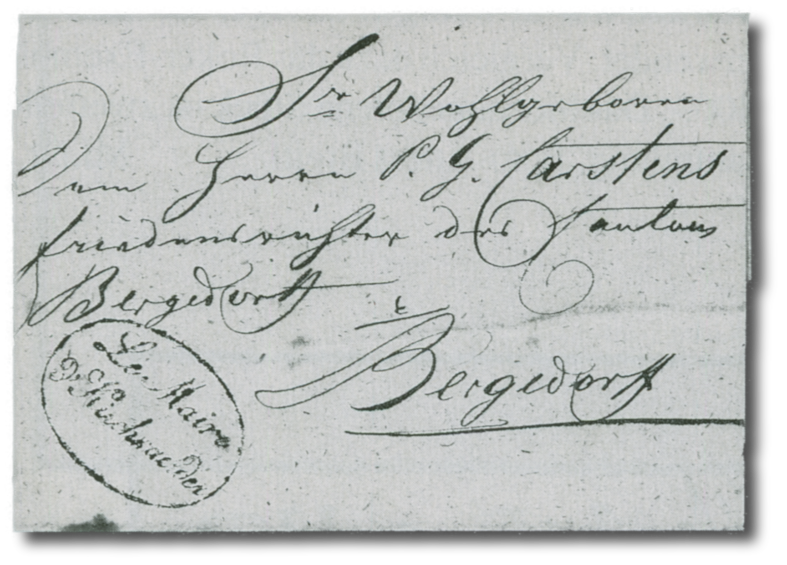 Sr Wohlgeboren
Dem Herrn P. G. Carstens
Friedensrichter des Cantons
Bergedorff
z
Bergedorff
Le Maire
de Kirchwaerder